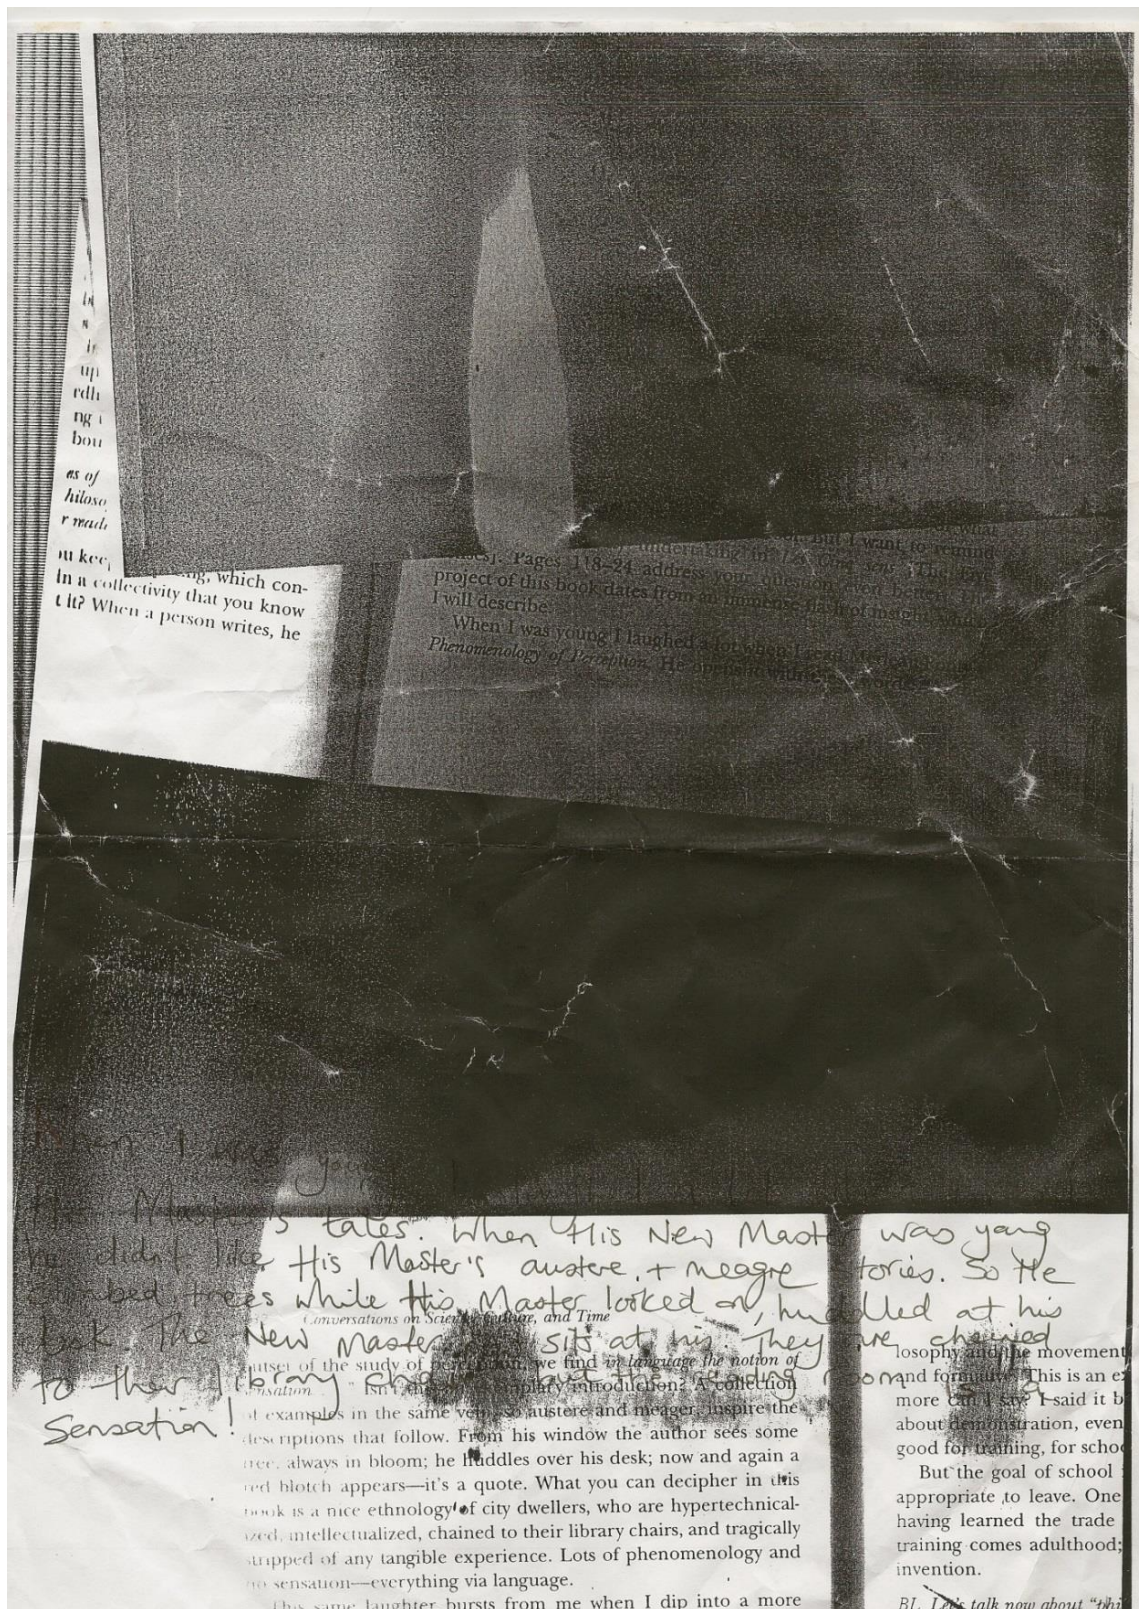 up
ng
bou
as of
hiloso
r made
ou keep
ng, which con-
in a collectivity that you know
t it? When a person writes, he
what
But I want to remind
undertaking in Les Cinq sens [The Five
Pages 118–24 address your question even better. The
project of this book dates from an immense flash of insight which
I will describe.
When I was young I laughed a lot when I read
Phenomenology of Perception. He opens it with
When I was young I
Master's tales. When His New Master was young
he didn't like His Master's austere + meagre stories. So He
climbed trees while His Master looked on, huddled at his
desk. The New Master sits at his. They are chained
to their library chairs and the reading room is a
Sensation!
Conversations on Science, Culture, and Time
outset of the study of perception, we find in language the notion of
sensation" Isn't this an exemplary introduction? A collection
of examples in the same vein, so austere and meager, inspire the
descriptions that follow. From his window the author sees some
tree, always in bloom; he huddles over his desk; now and again a
red blotch appears—it's a quote. What you can decipher in this
book is a nice ethnology of city dwellers, who are hypertechnical-
ized, intellectualized, chained to their library chairs, and tragically
stripped of any tangible experience. Lots of phenomenology and
no sensation—everything via language.
This same laughter bursts from me when I dip into a more
losophy and the movement
and formative. This is an ex
more can I say? I said it b
about demonstration, even
good for training, for schoo
But the goal of school
appropriate to leave. One
having learned the trade
training comes adulthood;
invention.
BL Let's talk now about "phi